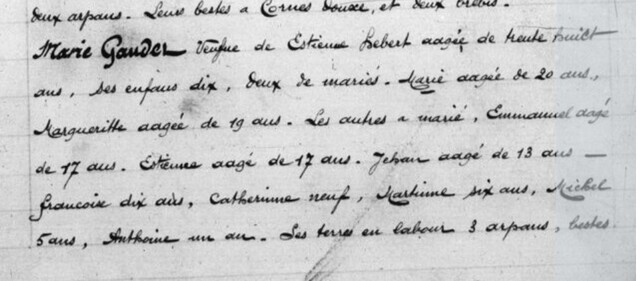 deux arpans. Leurs bestes a Cornes douxe, et deux brebis.
Marie Gaudet Veufue de Estienne hebert aagée de trente huict
ans, ses enfans dix, deux de mariés. Marie aagée de 20 ans.,
Margueritte aagée de 19 ans. Les autres a marié, Emmanuel aagé
de 17 ans. Estienne aagé de 17 ans. Jehan aagé de 13 ans —
francoise dix ans, Catherinne neuf, Martinne six ans, Michel
5 ans, Anthoine un an. Les terres en labour 3 arpans, bestes